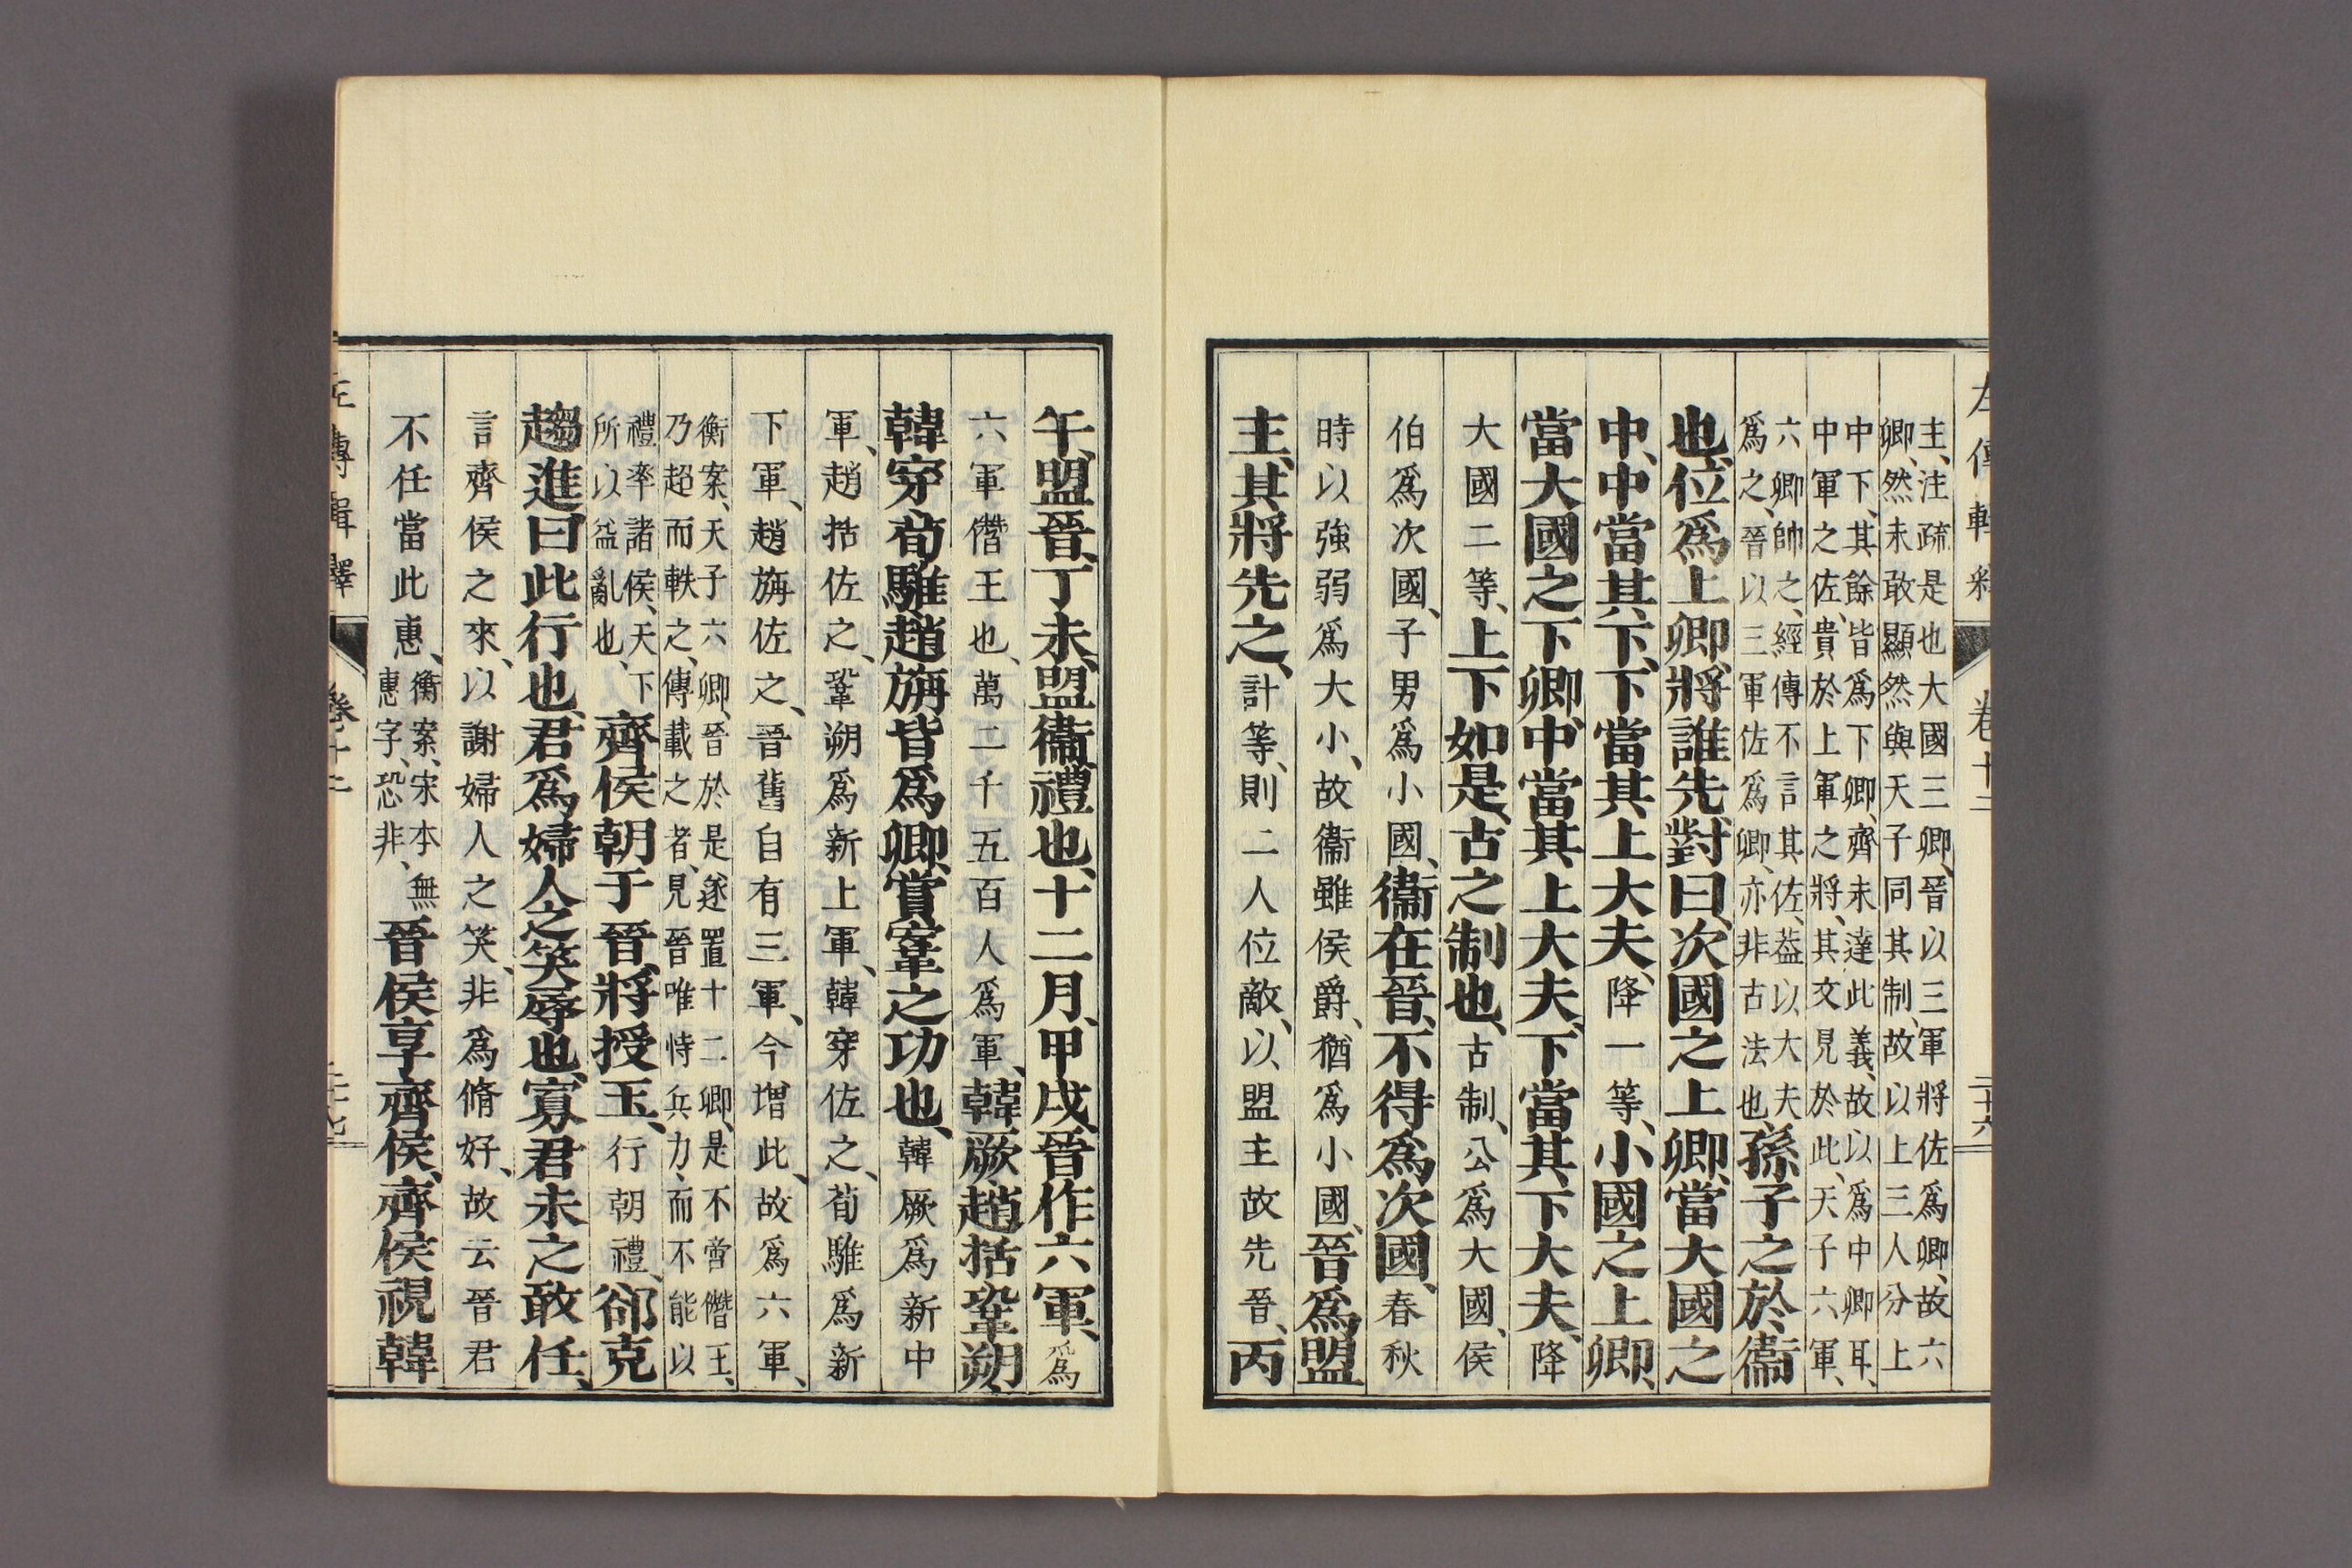 左傳輯釋 卷十二 二十六
主、注疏是也大國三卿、晉以三軍將佐爲卿、故六
卿、然未敢顯然與天子同其制、故以上三人分上
中下、其餘皆爲下卿、齊未達此義、故以爲中卿耳、
中軍之佐、貴於上軍之將、其文見於此、天子六軍、
六卿帥之、經傳不言其佐、葢以大夫
爲之、晉以三軍佐爲卿、亦非古法也、孫子之於衞
也、位爲上卿、將誰先、對曰、次國之上卿、當大國之
中、中當其下、下當其上大夫、降一等、小國之上卿、
當大國之下卿、中當其上大夫、下當其下大夫、降
大國二等、上下如是、古之制也、古制、公爲大國、侯
伯爲次國、子男爲小國、衞在晉、不得爲次國、春秋
時以強弱爲大小、故衞雖侯爵、猶爲小國、晉爲盟
主、其將先之、計等、則二人位敵、以盟主故先晉、丙
午、盟晉、丁未、盟衞、禮也、十二月、甲戌、晉作六軍、爲
六軍僭王也、萬二千五百人爲軍、韓厥、趙括、鞏朔、
韓穿、荀騅、趙旃皆爲卿、賞鞌之功也、韓厥爲新中
軍、趙括佐之、鞏朔爲新上軍、韓穿佐之、荀騅爲新
下軍、趙旃佐之、晉舊自有三軍、今增此、故爲六軍、
衡案、天子六卿、晉於是遂置十二卿、是不啻僭王、
乃超而軼之、傳載之者、見晉唯恃兵力、而不能以
禮率諸侯、天下
所以益亂也、齊侯朝于晉、將授玉、行朝禮、郤克
趨進曰、此行也、君爲婦人之笑辱也、寡君未之敢任、
言齊侯之來、以謝婦人之笑、非爲脩好、故云晉君
不任當此惠、衡案、宋本無
惠字、恐非、晉侯享齊侯、齊侯視韓
左傳輯釋 卷十二 二十七